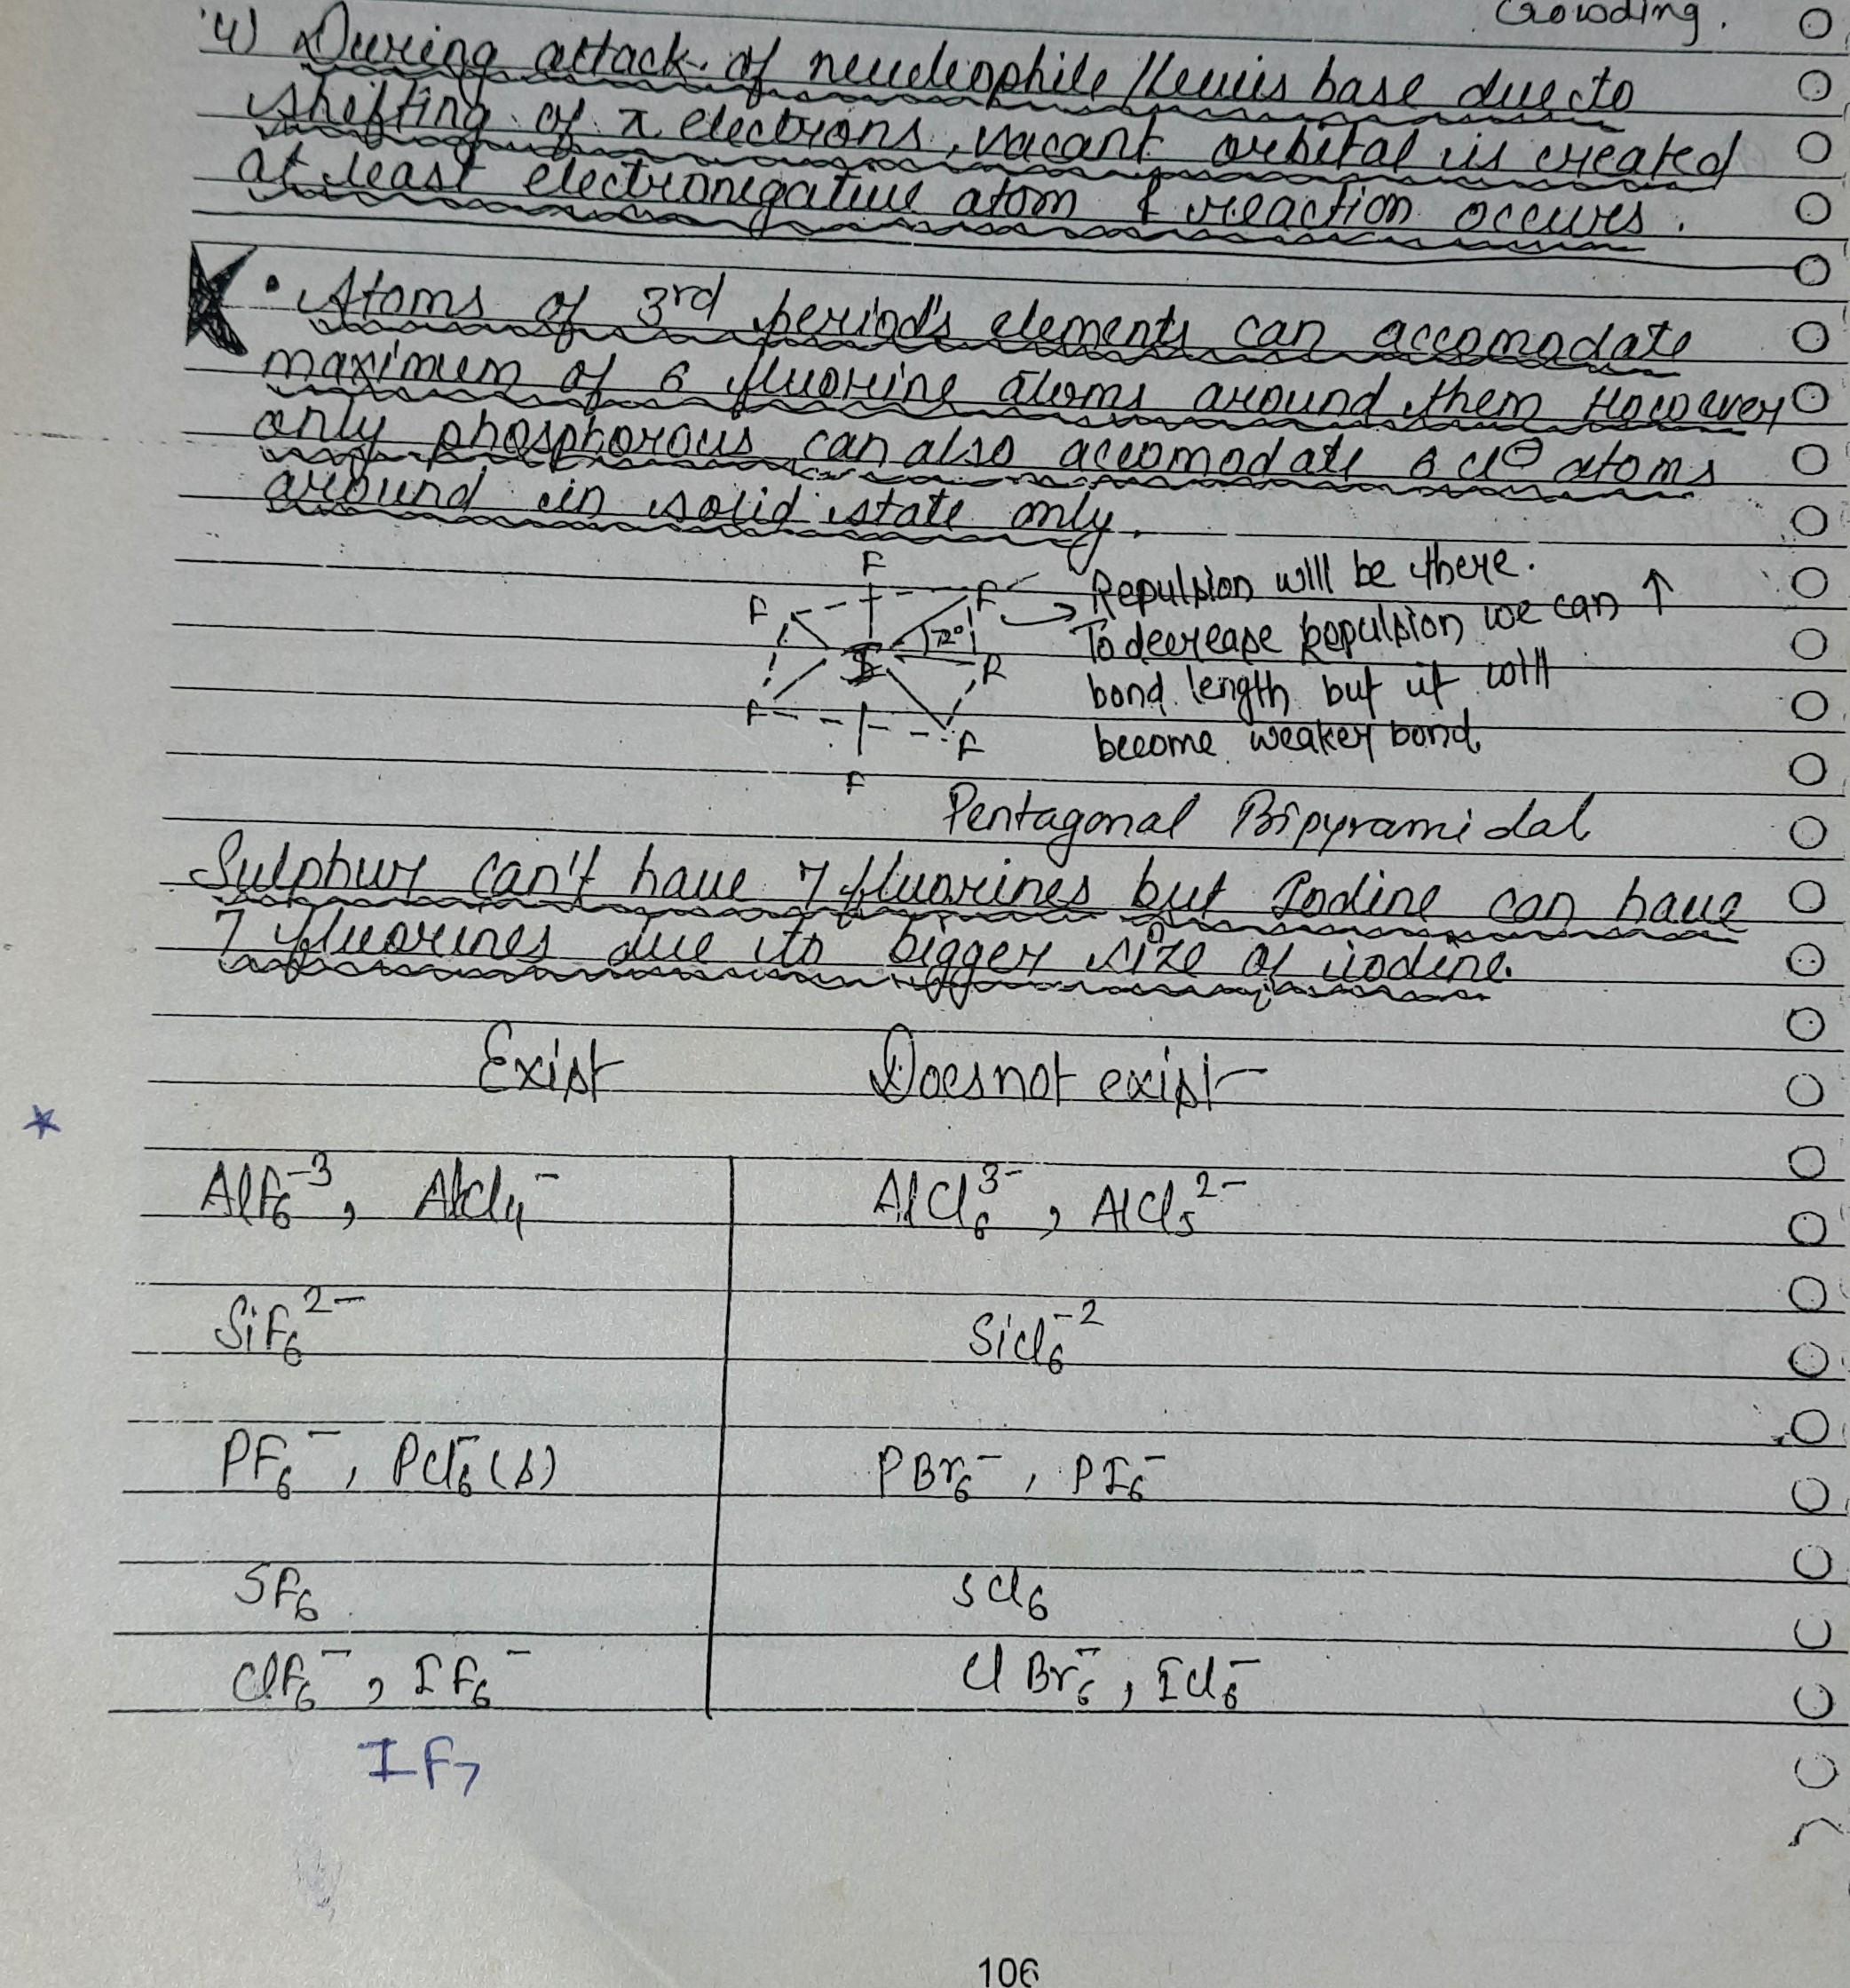 Crowding.
4) During attack of neucleophile / lewis base due to
shifting of π electrons, vacant orbital is created
at least electronegative atom & reaction occurs.
• Atoms of 3rd period's elements can accomodate
maximum of 6 fluorine atoms around them However
only phosphorous can also accomodate 6 cl⊖ atoms
around in solid state only.
F
F F → Repulsion will be there.
72° To decrease repulsion we can ↑
bond length but it will
F F become weaker bond.
F
Pentagonal Bipyramidal
Sulphur can't have 7 fluorines but Iodine can have
7 fluorines due to bigger size of iodine.
Exist Does not exist
AlF₆⁻³, AlCl₄⁻ AlCl₆³⁻, AlCl₅²⁻
SiF₆²⁻ SiCl₆⁻²
PF₆⁻, PCl₆⁻(s) PBr₆⁻, PI₆⁻
SF₆ SCl₆
ClF₆⁻, IF₆⁻ ClBr₆⁻, ICl₆⁻
IF₇
106